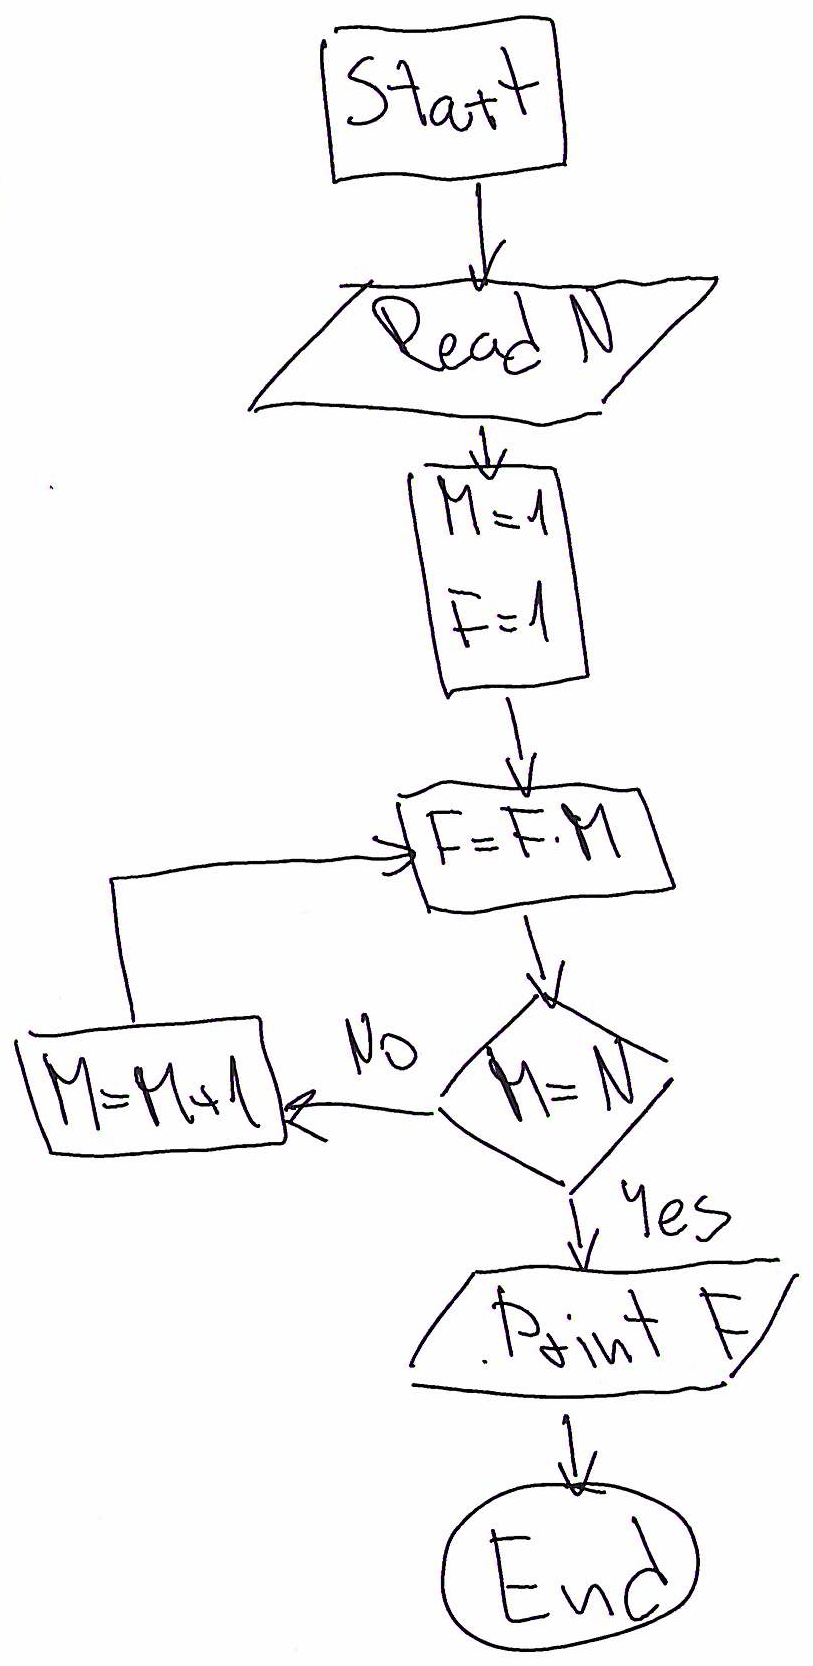 Start
Read N
M=1
F=1
F=F.M
M=N
No
M=M+1
Yes
Print F
End